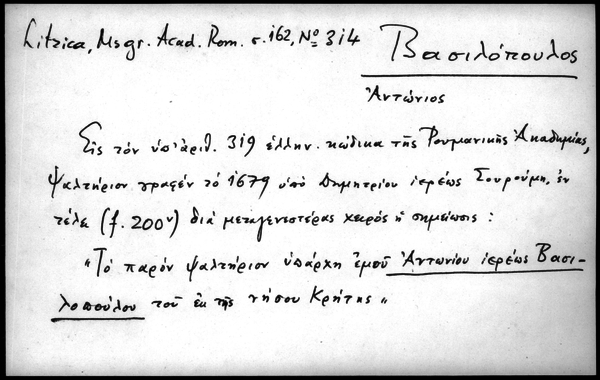 Litzica, Msgr. Acad. Rom. σ. 162, Nº 314
Βασιλόπουλος
Ἀντώνιος
Εἰς τὸν ὑπ' ἀριθ. 319 ἑλλην. κώδικα τῆς Ρουμανικῆς Ἀκαδημίας,
ψαλτήριον γραφέν τὸ 1679 ὑπὸ Δημητρίου ἱερέως Σουρούμη, ἐν
τέλει (f. 200ν) διὰ μεταγενεστέρας χειρός ἡ σημείωσις :
"Τὸ παρόν ψαλτήριον ὑπάρχη ἐμοῦ Ἀντωνίου ἱερέως Βασι-
λοπούλου τοῦ ἐκ τῆς νήσου Κρήτης"